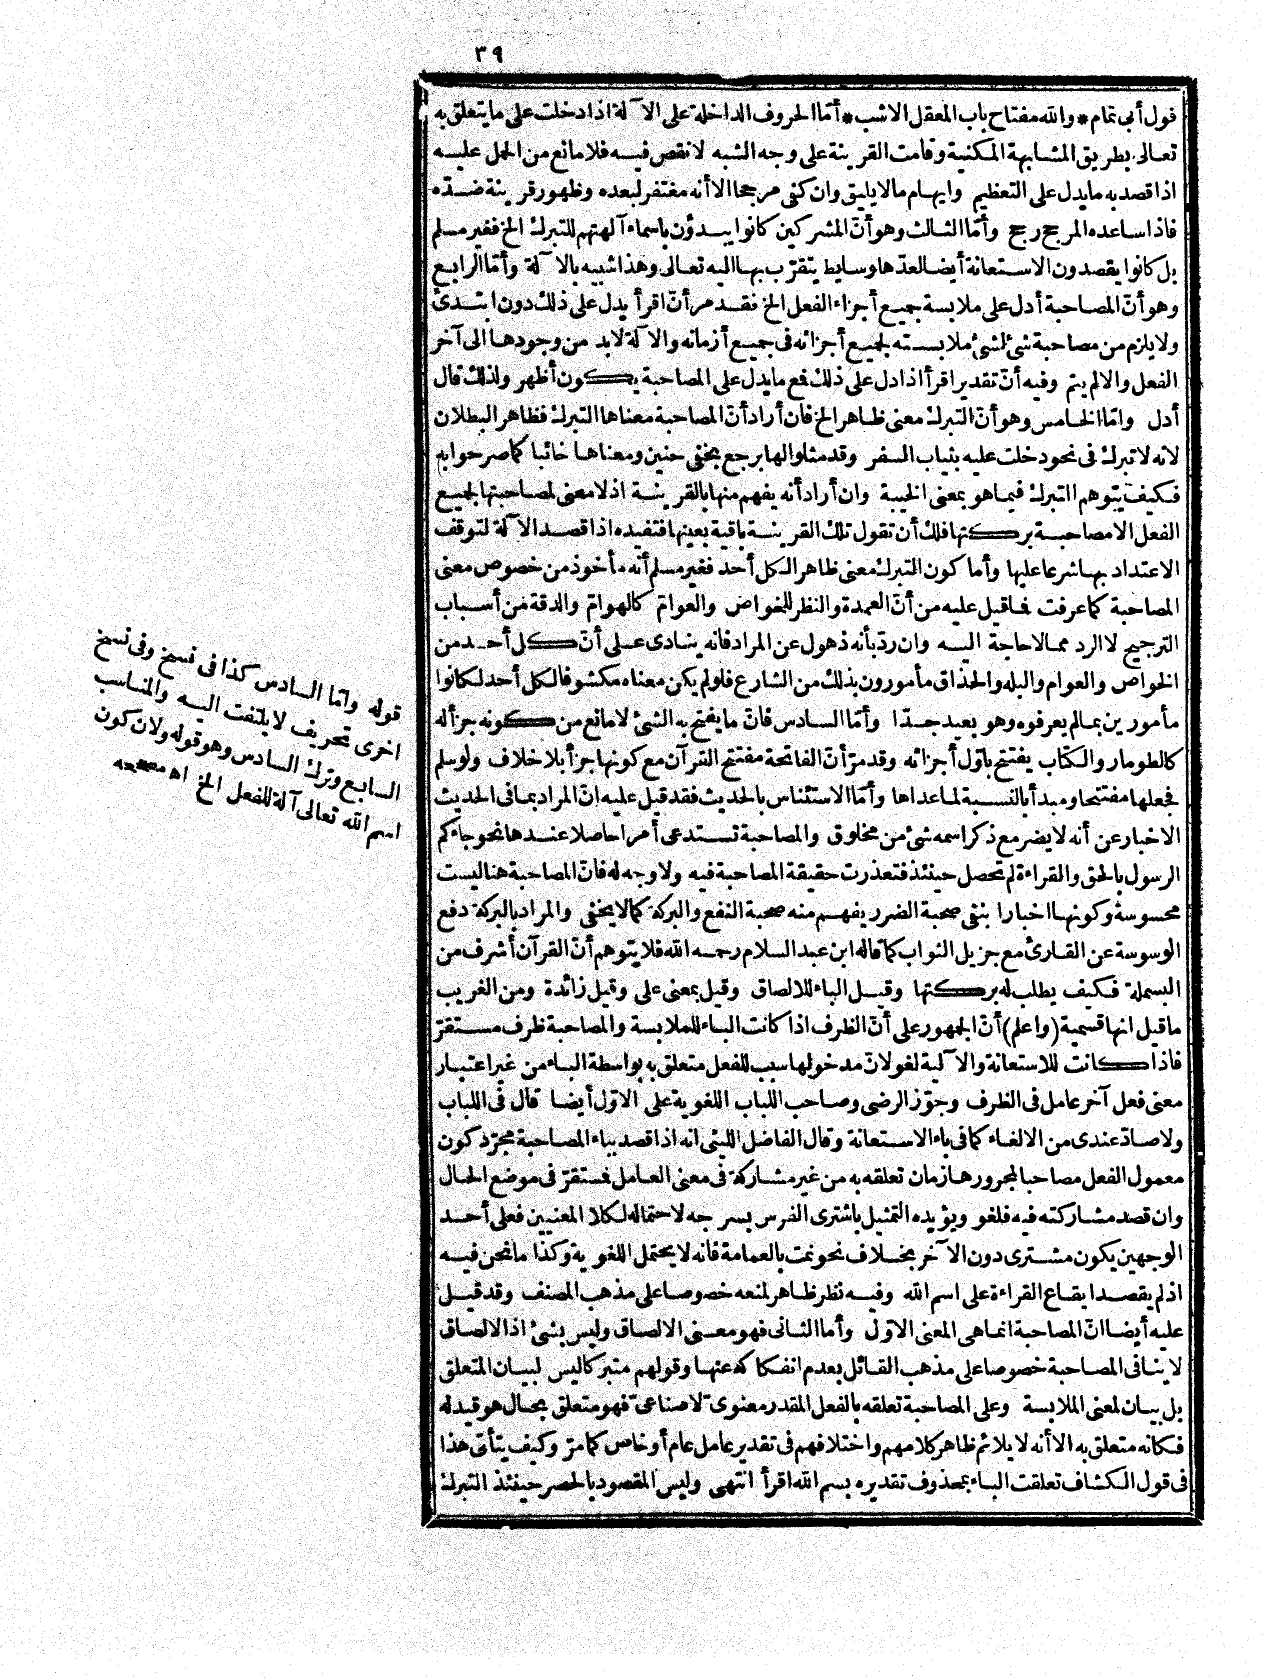 ٣٩
قول أبى تمام * والله مفتاح باب المعقل الاشب * أمّا الحروف الداخلة على الآلة اذا دخلت على ما يتعلق به
تعالى بطريق المشابهة المكنية وقامت القرينة على وجه الشبه لا نقص فيه فلا مانع من الحمل عليه
اذا قصد به ما يدل على التعظيم وايهام ما لا يليق وان كفى مرجحا الا أنه مغتفر لبعده وظهور قرينة ضدّه
فاذا ساعده المرجح رجح وأمّا الثالث وهو أنّ المشركين كانوا يبدؤن باسماء آلهتهم للتبرك الخ فغير مسلم
بل كانوا يقصدون الاستعانة أيضا لعدّها وسايط يتقرّب بها اليه تعالى وهذا شبيه بالآلة وأمّا الرابع
وهو أنّ المصاحبة أدل على ملابسة جميع أجزاء الفعل الخ فقد مر أنّ اقرأ يدل على ذلك دون ابتدئ
ولا يلزم من مصاحبة شئ لشئ ملابسته لجميع أجزائه فى جميع أزمانه والآلة لابد من وجودها الى آخر
الفعل والا لم يتم وفيه أنّ تقدير اقرأ اذا دل على ذلك فمع ما يدل على المصاحبة يكون أظهر ولذلك قال
أدل وامّا الخامس وهو أنّ التبرك معنى ظاهر الخ فان أراد أنّ المصاحبة معناها التبرك فظاهر البطلان
لانه لا تبرك فى نحو دخلت عليه بثياب السفر وقد مثلوا لها برجع بخفى حنين ومعناها خائبا كما صرحوا به
فكيف يتوهم التبرك فيما هو بمعنى الخيبة وان أراد أنه يفهم منها بالقرينة اذ لا معنى لمصاحبتها لجميع
الفعل الا مصاحبة بركتها فلك أن تقول تلك القرينة باقية بعينها فتفيده اذا قصد الآلة لتوقف
الاعتداد بها شرعا عليها وأما كون التبرك معنى ظاهر الكل أحد فغير مسلم أنه مأخوذ من خصوص معنى
المصاحبة كما عرفت فما قيل عليه من أنّ العمدة والنظر للغواض والعوامّ كالهوامّ والدقة من أسباب
الترجيح لا الرد مما لا حاجة اليه وان ردّ بأنه ذهول عن المراد فانه ينادى على أنّ كل أحد من
الخواص والعوام والبله والحذاق مأمورون بذلك من الشارع فلو لم يكن معناه مكشوفا لكل أحد لكانوا
مأمورين بما لم يعرفوه وهو بعيد جدّا وأمّا السادس فانّ ما يفتح به الشئ لا مانع من كونه جزأ له
كالطومار والكتاب يفتتح باوّل أجزائه وقد مرّ أنّ الفاتحة مفتتح القرآن مع كونها جزأ بلا خلاف ولو سلم
فجعلها مفتتحا ومبدأ بالنسبة لما عداها وأمّا الاستئناس بالحديث فقد قيل عليه انّ المراد بما فى الحديث
الاخبار عن أنه لا يضر مع ذكر اسمه شئ من مخلوق والمصاحبة تستدعى أمرا حاصلا عندها نحو جاءكم
الرسول بالحق والقراءة لم تحصل حينئذ فتعذرت حقيقة المصاحبة فيه ولا وجه له فانّ المصاحبة هنا ليست
محسوسة وكونها اخبارا بنفى صحبة الضرر يفهم منه صحبة النفع والبركة كما لا يخفى والمراد بالبركة دفع
الوسوسة عن القارئ مع جزيل الثواب كما قاله ابن عبد السلام رحمه الله فلا يتوهم أنّ القرآن أشرف من
البسملة فكيف يطلب له بركتها وقيل الباء للالصاق وقيل بمعنى على وقيل زائدة ومن الغريب
ما قيل انها قسمية (واعلم) أنّ الجمهور على أنّ الظرف اذا كانت الباء للملابسة والمصاحبة ظرف مستقرّ
فاذا كانت للاستعانة والآلية لغو لانّ مدخولها سبب للفعل متعلق به بواسطة الباء من غير اعتبار
معنى فعل آخر عامل فى الظرف وجوّز الرضى وصاحب اللباب اللغوية على الاوّل أيضا قال فى اللباب
ولا صادّ عندى من الالغاء كما فى باء الاستعانة وقال الفاضل الليثى انه اذا قصد بباء المصاحبة مجرّد كون
معمول الفعل مصاحبا لمجرورها زمان تعلقه به من غير مشاركة فى معنى العامل فمستقرّ فى موضع الحال
وان قصد مشاركته فيه فلغو ويؤيده التمثيل باشترى الفرس بسرجه لاحتماله لكلا المعنيين فعلى أحد
الوجهين يكون مشترى دون الآخر بخلاف نحو نمت بالعمامة فانه لا يحتمل اللغوية وكذا ما نحن فيه
اذ لم يقصد ايقاع القراءة على اسم الله وفيه نظر ظاهر لمنعه خصوصا على مذهب المصنف وقد قيل
عليه أيضا انّ المصاحبة انما هى المعنى الاوّل وأما الثانى فهو معنى الالصاق وليس بشئ اذ الالصاق
لا ينافى المصاحبة خصوصا على مذهب القائل بعدم انفكاكه عنها وقولهم متبركا ليس لبيان المتعلق
بل بيان لمعنى الملابسة وعلى المصاحبة تعلقه بالفعل المقدر معنوىّ لا صناعىّ فهو متعلق بحال هو قيد له
فكانه متعلق به الا أنه لا يلائم ظاهر كلامهم واختلافهم فى تقدير عامل عام أو خاص كما مرّ وكيف يتأتى هذا
فى قول الكشاف تعلقت الباء بمحذوف تقديره بسم الله اقرأ انتهى وليس المقصود بالحصر حينئذ التبرك
قوله وامّا السادس كذا فى نسخ وفى نسخ
اخرى تحريف لا يلتفت اليه والمناسب
السابع وترك السادس وهو قوله ولان كون
اسم الله تعالى آلة للفعل الخ اه مصححه